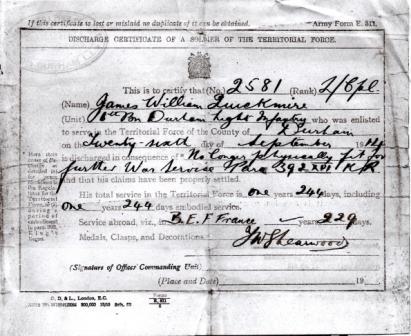 If this certificate to lost or mislaid no duplicate of it can be obtained.
Army Form E. 511.
DISCHARGE CERTIFICATE OF A SOLDIER OF THE TERRITORIAL FORCE.
This is to certify that (No.) 2581 (Rank) L/Cpl.
(Name) James William Quickmire
(Unit) Bn Durham Light Infantry who was enlisted
to serve in the Territorial Force of the County of Durham
on the Twenty sixth day of September 1914
is discharged in consequence of No longer physically fit for
further War Service Para 392 XVI KR
and that his claims have been properly settled.
His total service in the Territorial Force in one years 244 days, including
one years 244 days embodied service.
Service abroad, viz., in B.E.F France years 229 days.
Medals, Clasps, and Decorations
(Signature of Officer Commanding Unit)
(Place and Date) 19
D. D. & L., London, E.C.